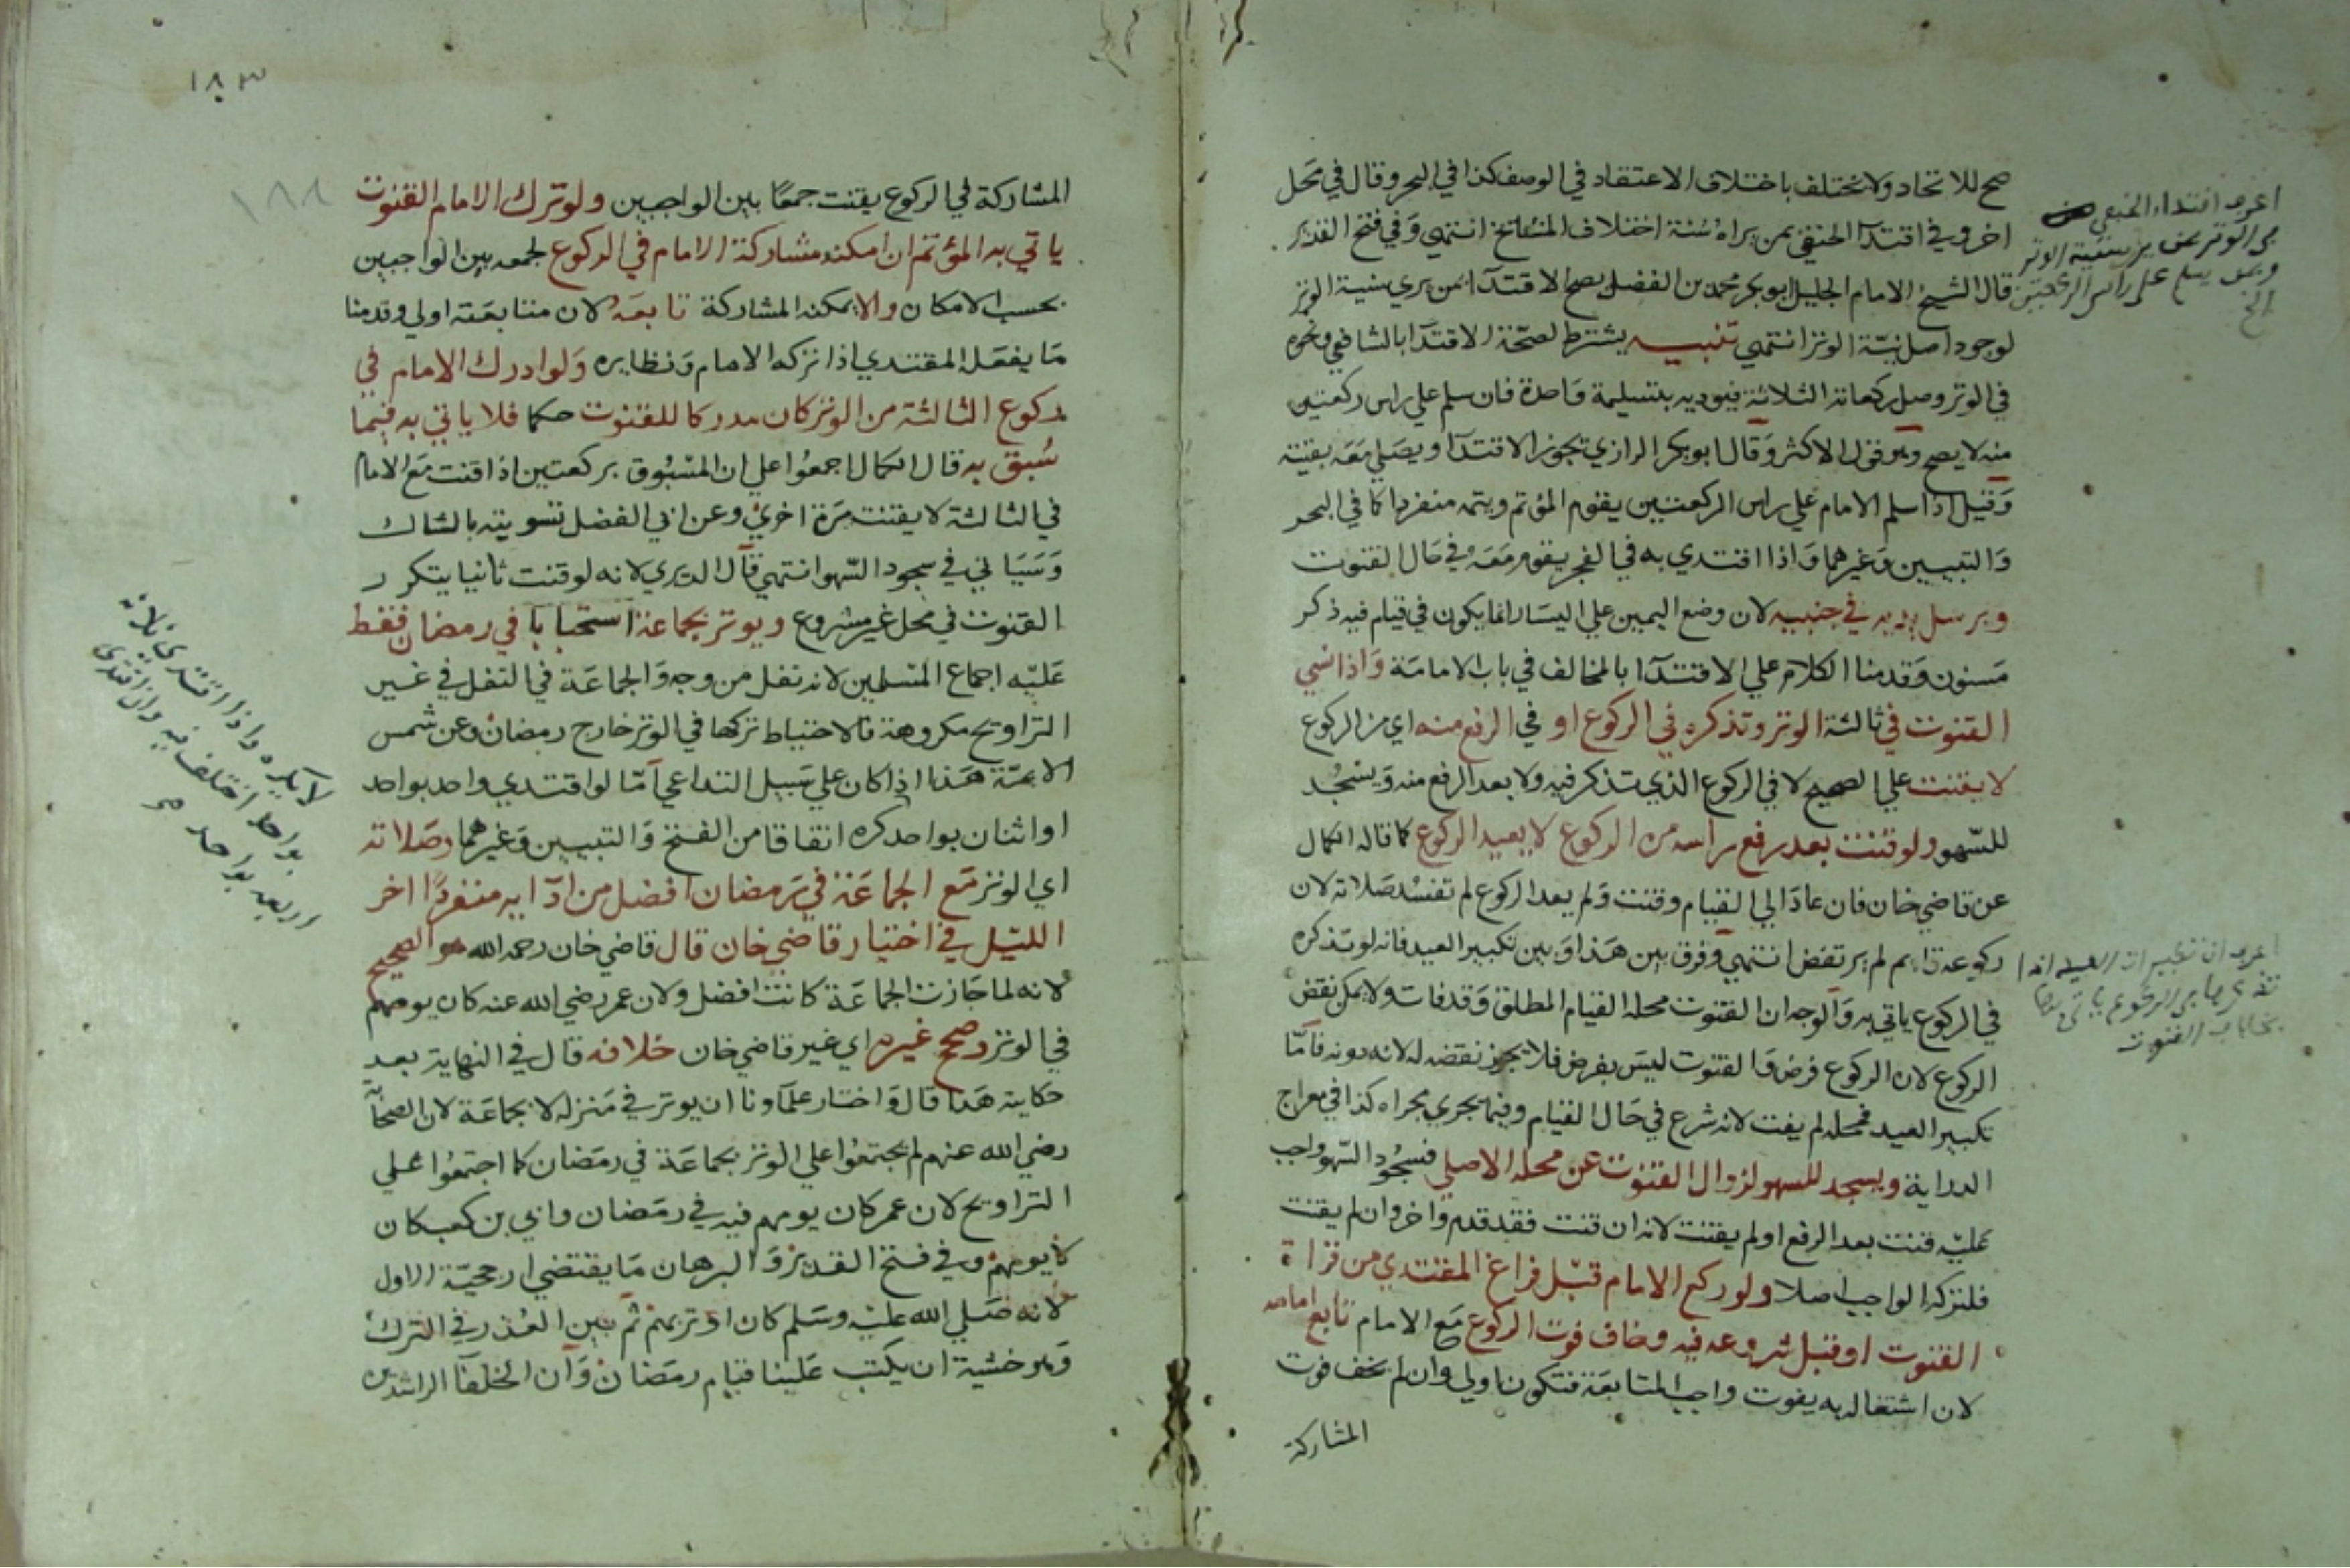 صح للاتحاد ولا تختلف باختلاف الاعتقاد في الوصف كذا في البحر وقال في محل
اخر وفي اقتدآ الحنفي بمن يراه سُنة اختلاف المشايخ انتهى وفي فتح القدير
قال الشيخ الامام الجليل ابو بكر محمد بن الفضل يصح الاقتدآ بمن يري سنية الوتر
لوجود اصل نيّة الوتر انتهى تنبيه يشترط لصحّة الاقتدآ بالشافعي ونحوه
في الوتر وصل ركعاته الثلاثة فيوديه بتسليمة واحدة فان سلم علي راس ركعتين
منه لا يصح وهو قول الاكثر وقال ابو بكر الرازي يجوز الاقتدآ ويصلي معه بقيته
وقيل اذا سلم الامام علي راس الركعتين يقوم المؤتم ويتمه منفردا كما في البحر
والتبيين وغيرهما واذا اقتدي به في الفجر يقوم معه في حال القنوت
ويرسل يديه في جنبيه لان وضع اليمين علي اليسار انما يكون في قيام فيه ذكر
مسنون وقدمنا الكلام علي الاقتدآ بالمخالف في باب الامامة واذا نسي
القنوت في ثالثة الوتر وتذكره في الركوع او في الرفع منه اي من الركوع
لا يقنت علي الصحيح لا في الركوع الذي تذكر فيه ولا بعد الرفع منه ويسجد
للسّهو ولو قنت بعد رفع راسه من الركوع لا يعيد الركوع كما قاله الكمال
عن قاضي خان فان عاد الي القيام وقنت ولم يعد الركوع لم تفسد صلاته لان
ركوعه قايم لم يرتفض انتهى وفرق بين هذا وبين تكبير العيد فانه لو تذكره
في الركوع ياتي به والوجه ان القنوت محله القيام المطلق وقد فات ولا يمكن نقض
الركوع لان الركوع فرض والقنوت ليس بفرض فلا يجوز نقضه له لانه دونه فامّا
تكبير العيد فمحله لم يفت لانه شرع في حال القيام وفيما يجري مجراه كذا في معراج
الدراية ويسجد للسهو لزوال القنوت عن محله الاصلي فسجُود السّهو واجب
عليه قنت بعد الرفع او لم يقنت لانه ان قنت فقد قدم واخر وان لم يقنت
فلتركه الواجب اصلا ولو ركع الامام قبل فراغ المقتدي من قراة
القنوت او قبل شروعه فيه وخاف فوت الركوع مع الامام تابع امامه
لان اشتغاله به يفوت واجب المتابعة فتكون اولي وان لم يخف فوت
المشاركة
اعرف اقتداء الحنفي
في الوتر بمن ير سنية الوتر
وبمن يسلم على راس الركعتين
الخ
اعرف ان تكبيرات العيد اذا
تذكرها في الركوع ياتي بها
بخلاف القنوت
١٨٣
المشاركة في الركوع يقنت جمعًا بين الواجبين ولو ترك الامام القنوت
ياتي به المؤتم ان امكنه مشاركة الامام في الركوع لجمعه بين الواجبين
بحسب الامكان والا يمكنه المشاركة تابعَهُ لان متابعته اولي وقدمنا
ما يفعله المقتدي اذا تركه الامام ونظايره ولو ادرك الامام في
ركوع الثالثة من الوتر كان مدركا للقنوت حكما فلا ياتي به فيما
سُبق به قال الكمال اجمعُوا علي ان المسْبُوق بركعتين اذا قنت مع الامام
في الثالثة لا يقنت مرة اخري وعن ابي الفضل تسويته بالشاك
وسَيَاتي في سجود السّهو انتهى قال الديري لانه لو قنت ثانيا يتكرر
القنوت في محل غير مشروع ويوتر بجماعة استحبابا في رمضان فقط
عليه اجماع المسلمين لانه نفل من وجه والجماعة في النفل في غير
التراويح مكروهة فالاحتياط تركها في الوتر خارج رمضان وعن شمس
الايمّة هذا اذا كان علي سبيل التداعي امّا لو اقتدي واحد بواحد
او اثنان بواحد كره اتفاقا من الفتح والتبيين وغيرهما وصلاته
اي الوتر مع الجماعة في رمضان افضل من ادآيه منفردًا اخر
الليل في اختيار قاضي خان قال قاضي خان رحمه الله هو الصحيح
لانه لما جازت الجماعة كانت افضل ولان عمر رضي الله عنه كان يومهم
في الوتر وصحح غيره اي غير قاضي خان خلافه قال في النهاية بعد
حكاية هذا قال واختار علماونا ان يوتر في منزله لا بجماعة لان الصحابة
رضي الله عنهم لم يجتمعُوا علي الوتر بجماعة في رمضان كما اجتمعُوا علي
التراويح لان عمر كان يومهم فيه في رمضان وابي بن كعب كان
لا يومهم وفي فتح القدير والبرهان ما يقتضي ارجحيّة الاول
لانه صلي الله عليه وسلم كان اوتر بهم ثم بين العُذر في الترك
وهو خشية ان يكتب علينا قيام رمضان وان الخلفآ الراشدين
لا يكره واذا اقتدى ثلاثة
بواحد اختلف فيه وان اقتدى
اربعة بواحد